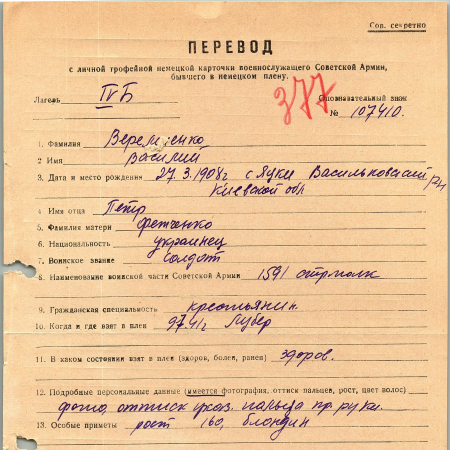 Сов. секретно
ПЕРЕВОД
с личной трофейной немецкой карточки военнослужащего Советской Армии,
бывшего в немецком плену.
377
Лагерь IVБ Опознавательный знак
№ 107410.
1. Фамилия
2 Имя Василий
3. Дата и место рождения 27.3.1908г с Яцки Васильковский
Киевской обл
4. Имя отца Петр
5. Фамилия матери Фетченко
6. Национальность украинец
7. Воинское звание солдат
8. Наименование воинской части Советской Армии 1591
9. Гражданская специальность крестьянин.
10. Когда и где взят в плен
11. В каком состоянии взят в плен (здоров, болен, ранен) здоров.
12. Подробные персональные данные (имеется фотография, оттиск пальцев, рост, цвет волос)
фото, оттиск указ. пальца пр. руки.
13. Особые приметы рост 160, блондин